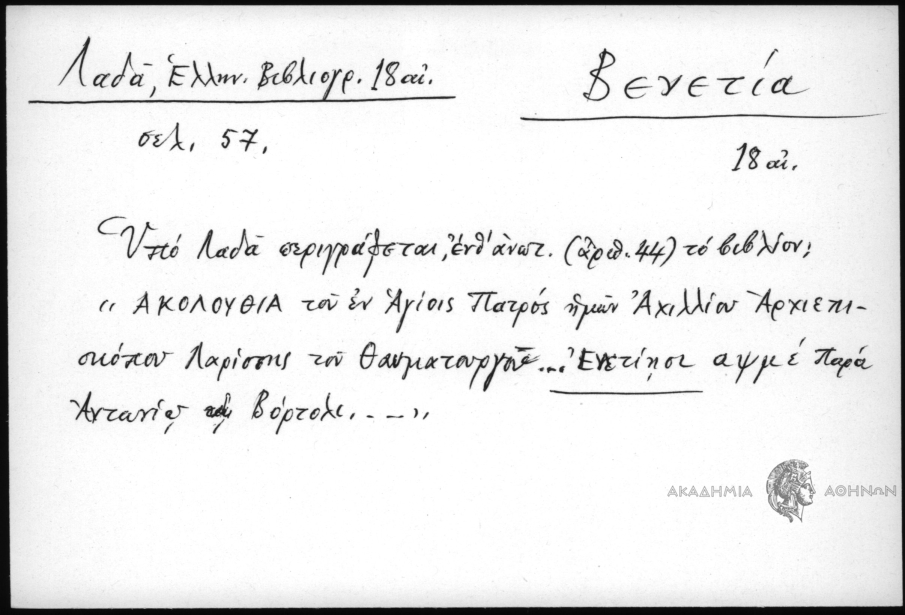 Λαδᾶ, Ἑλλην. Βιβλιογρ. 18 αἰ.
Βενετία
σελ. 57.
18 αἰ.
Ὑπό Λαδᾶ περιγράφεται, ἐνθ' ἀνωτ. (ἀριθ. 44) τό βιβλίον:
„ ΑΚΟΛΟΥΘΙΑ τοῦ ἐν Ἁγίοις Πατρός ἡμῶν Ἀχιλλίου Ἀρχιεπι-
σκόπου Λαρίσσης τοῦ θαυματουργοῦ ... Ἐνετίησι αψμέ Παρά
Ἀντωνίῳ τῷ Βόρτολι. – – „
ΑΚΑΔΗΜΙΑ ΑΘΗΝΩΝ